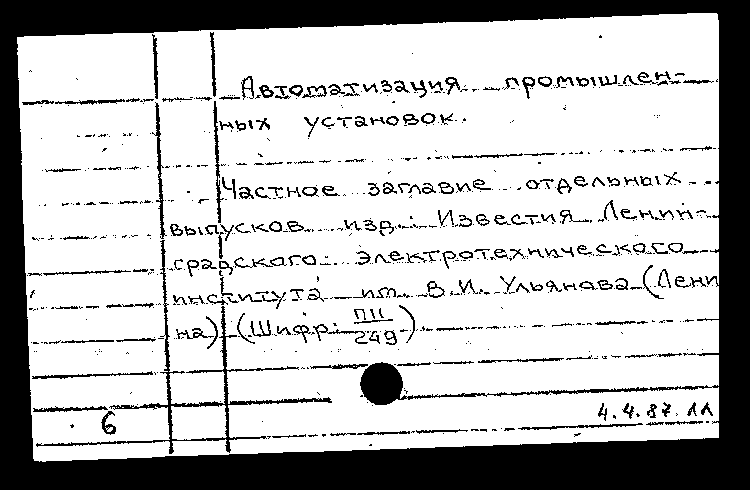 Автоматизация промышлен-
ных установок.
Частное заглавие отдельных
выпусков изд.: Известия Ленин-
градского электротехнического
института им. В.И. Ульянова (Лени
на) (Шифр: П11
249)
6
4.4.87.11